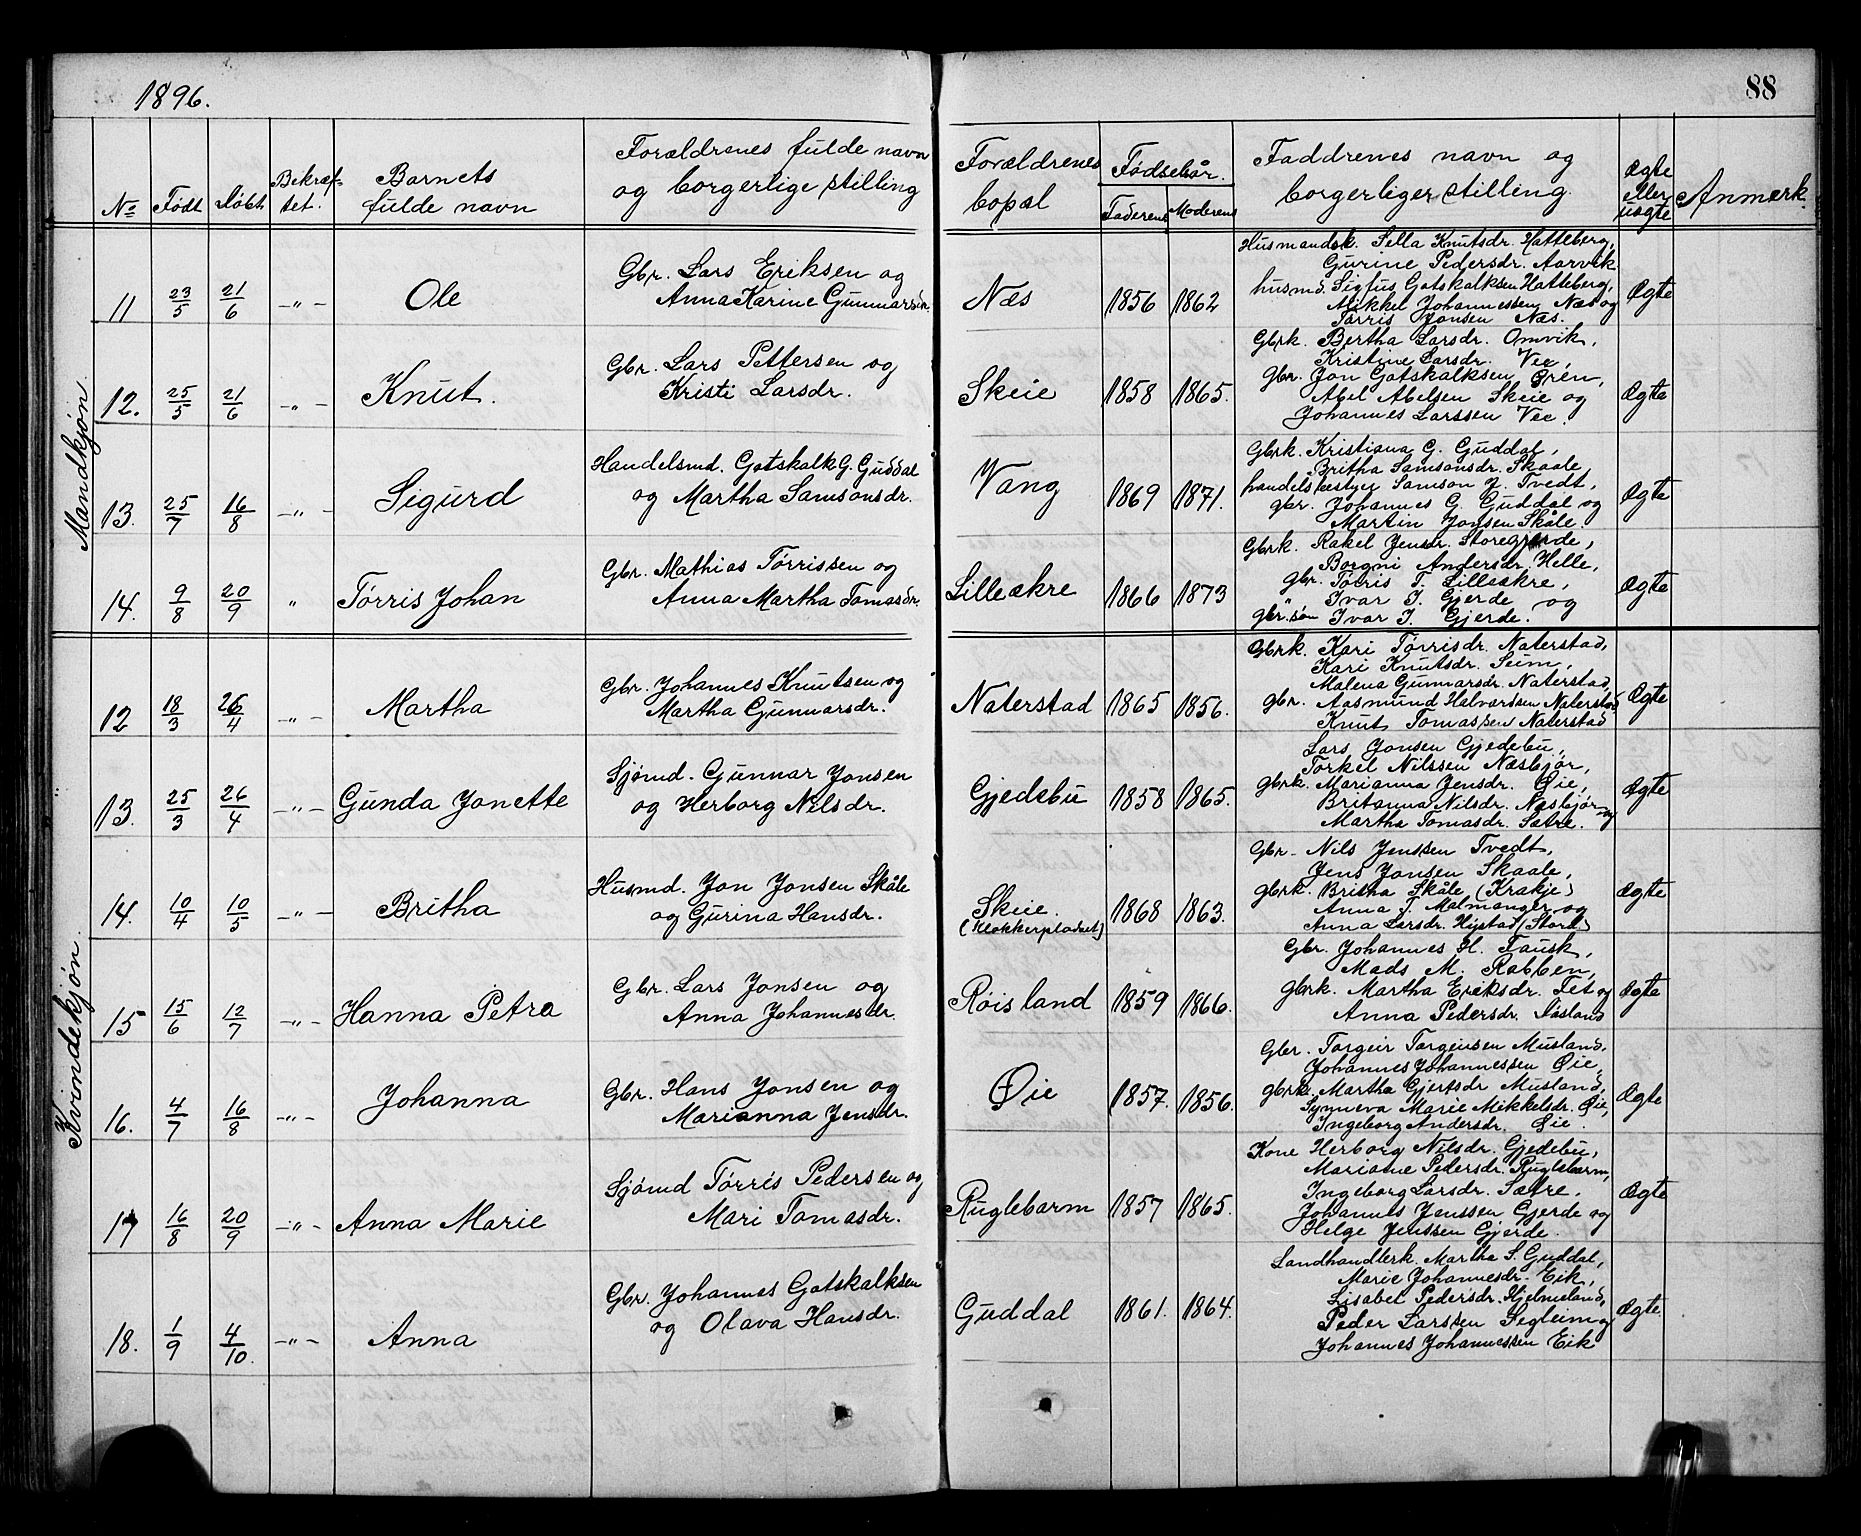 1896.
88
No
Født
Døbt
Bekræf-
tet.
Barnets
fulde navn
Forældrenes fulde navn
og borgerlige stilling
Forældrenes
bopæl
Fødselsår.
Faderens
Moderens
Faddrenes navn og
borgerliger stilling.
Ægte
eller
uægte
Anmærk.
Mandkjøn.
11 23/5 21/6 -"- Ole
Gbr. Lars Eriksen og
Anna Karine Gunnarsdr.
Næs 1856 1862
Husmandsk. Sella Knutsdr. Hatteberg,
Gurine Pedersdr. Aarvik
husmd. Sigfus Gotskalksen Hatteberg,
Mikkel Johannessen Næs og
Tørris Jonsen Næs.
Ægte
12. 25/5 21/6 -"- Knut.
Gbr. Lars Pettersen og
Kristi Larsdr.
Skeie 1858 1865.
Gbrk. Bertha Larsdr. Omvik,
Kristine Larsdr. Vee,
gbr. Jon Gotskalksen Eren,
Abel Abelsen Skeie og
Johannes Larssen Vee.
Ægte
13. 25/7 16/8 -"- Sigurd
Handelsmd. Gotskalk G. Guddal
og Martha Samsonsdr.
Vang 1869 1871.
Gbrk. Kristiana G. Guddal,
Britha Samsonsdr. Skaale,
handelsbestyer Samson J. Tvedt,
gbr. Johannes G. Guddal og
Martin Jonsen Skåle.
Ægte
14. 9/8 20/9 " Tørris Johan
Gbr. Mathias Tørrissen og
Anna Martha Tomasdr.
Lilleækre 1866 1873
Gbrk. Rakel Jensdr. Storegjerde,
Borgni Andersdr. Helle,
gbr. Tørris T. Lilleækre,
" Ivar I. Gjerde og
gbr. søn Ivar I. Gjerde.
Ægte
Kvindekjøn.
12 18/3 26/4 -"- Martha
Gbr. Johannes Knutsen og
Martha Gunnarsdr.
Naterstad 1865 1856.
Gbrk. Kari Tørrisdr. Naterstad,
Kari Knutsdr. Seim,
Malena Gunnarsdr. Naterstad,
gbr. Aasmund Halvardsen Naterstad
Knut Tomassen Naterstad
Ægte
13. 25/3 26/4 -"- Gunda Jonette
Sjømd. Gunnar Jonsen
og Herborg Nilsdr.
Gjedebu 1858 1865.
Lars Jonsen Gjedebu,
Torkel Nilssen Næsbjør,
gbrk. Marianna Jensdr. Øie,
Britanna Nilsdr. Næsbjør og
Martha Tomasdr. Sætre.
Ægte
14. 10/4 10/5 -"- Britha
Husmd. Jon Jonsen Skåle
og Gurina Hansdr.
Skeie.
(Klokkerpladset) 1868 1863.
Gbr. Nils Jenssen Tvedt,
Jens Jonsen Skaale,
gbrk. Britha Skåle (Krakje)
Anna T. Malmanger og
Anna Larsdr. Hystad (Stord)
Ægte
15 15/6 12/7 -"- Hanna Petra
Gbr. Lars Jonsen og
Anna Johannesdr.
Røisland 1859 1866.
Gbr. Johannes H. Fausk,
Mads M. Rabben,
gbrk. Martha Eriksdr. Tet og
Anna Pedersdr.
Ægte
16. 4/7 16/8 -"- Johanna
Gbr. Hans Jonsen og
Marianna Jensdr.
Øie 1857. 1856.
Gbr. Torgeir Torgeirsen Musland,
Johannes Johannessen Øie,
gbrk. Martha Gjertsdr. Musland,
Synneva Marie Mikkelsdr. Øie,
Ingeborg Andersdr. Øie.
Ægte
17 16/8 20/9 -"- Anna Marie
Sjømd Tørris Pedersen og
Mari Tomasdr.
Ruglebarm 1857 1865.
Kone Herborg Nilsdr. Gjedebu,
Mariane Pedersdr. Ruglebarm,
Ingeborg Larsdr. Sætre,
Johannes Jenssen Gjerde og
Helge Jenssen Gjerde.
Ægte
18. 1/9 4/10. -"- Anna
Gbr. Johannes Gotskalksen
og Olava Hansdr.
Guddal 1861. 1864.
Landhandlerk. Martha S. Guddal,
Marie Johannesdr. Eik,
Lisabet Pedersdr. Hjelmeland,
Peder Larssen Segleim og
Johannes Johannessen Eik
Ægte